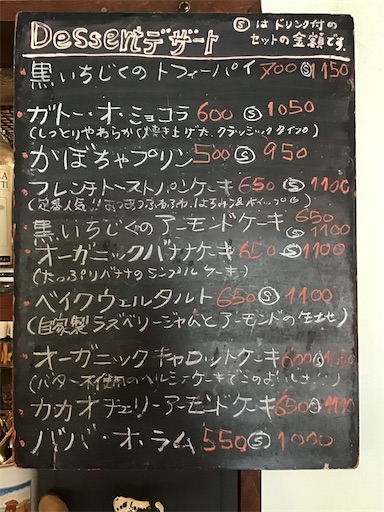 Dessertデザート
Ⓢはドリンク付の
セットの金額です。
黒いちじくのトフィーパイ 700 Ⓢ 1150
ガトー・オ・ショコラ 600 Ⓢ 1050
(しっとりやわらかく焼き上げた、クラシックタイプ)
かぼちゃプリン 500 Ⓢ 950
フレンチトーストパンケーキ 650 Ⓢ 1100
(定番人気!!
黒いちじくのアーモンドケーキ 650 Ⓢ 1100
オーガニックバナナケーキ 650 Ⓢ 1100
(たっぷりバナナのシンプルケーキ)
ベイクウェルタルト 650 Ⓢ 1100
(自家製ラズベリージャムとアーモンドの生地)
オーガニックキャロットケーキ 600 Ⓢ
(バター不使用のヘルシーケーキ
カカオチェリーアーモンドケーキ 650 Ⓢ 1100
ババ・オ・ラム 550 Ⓢ 1000